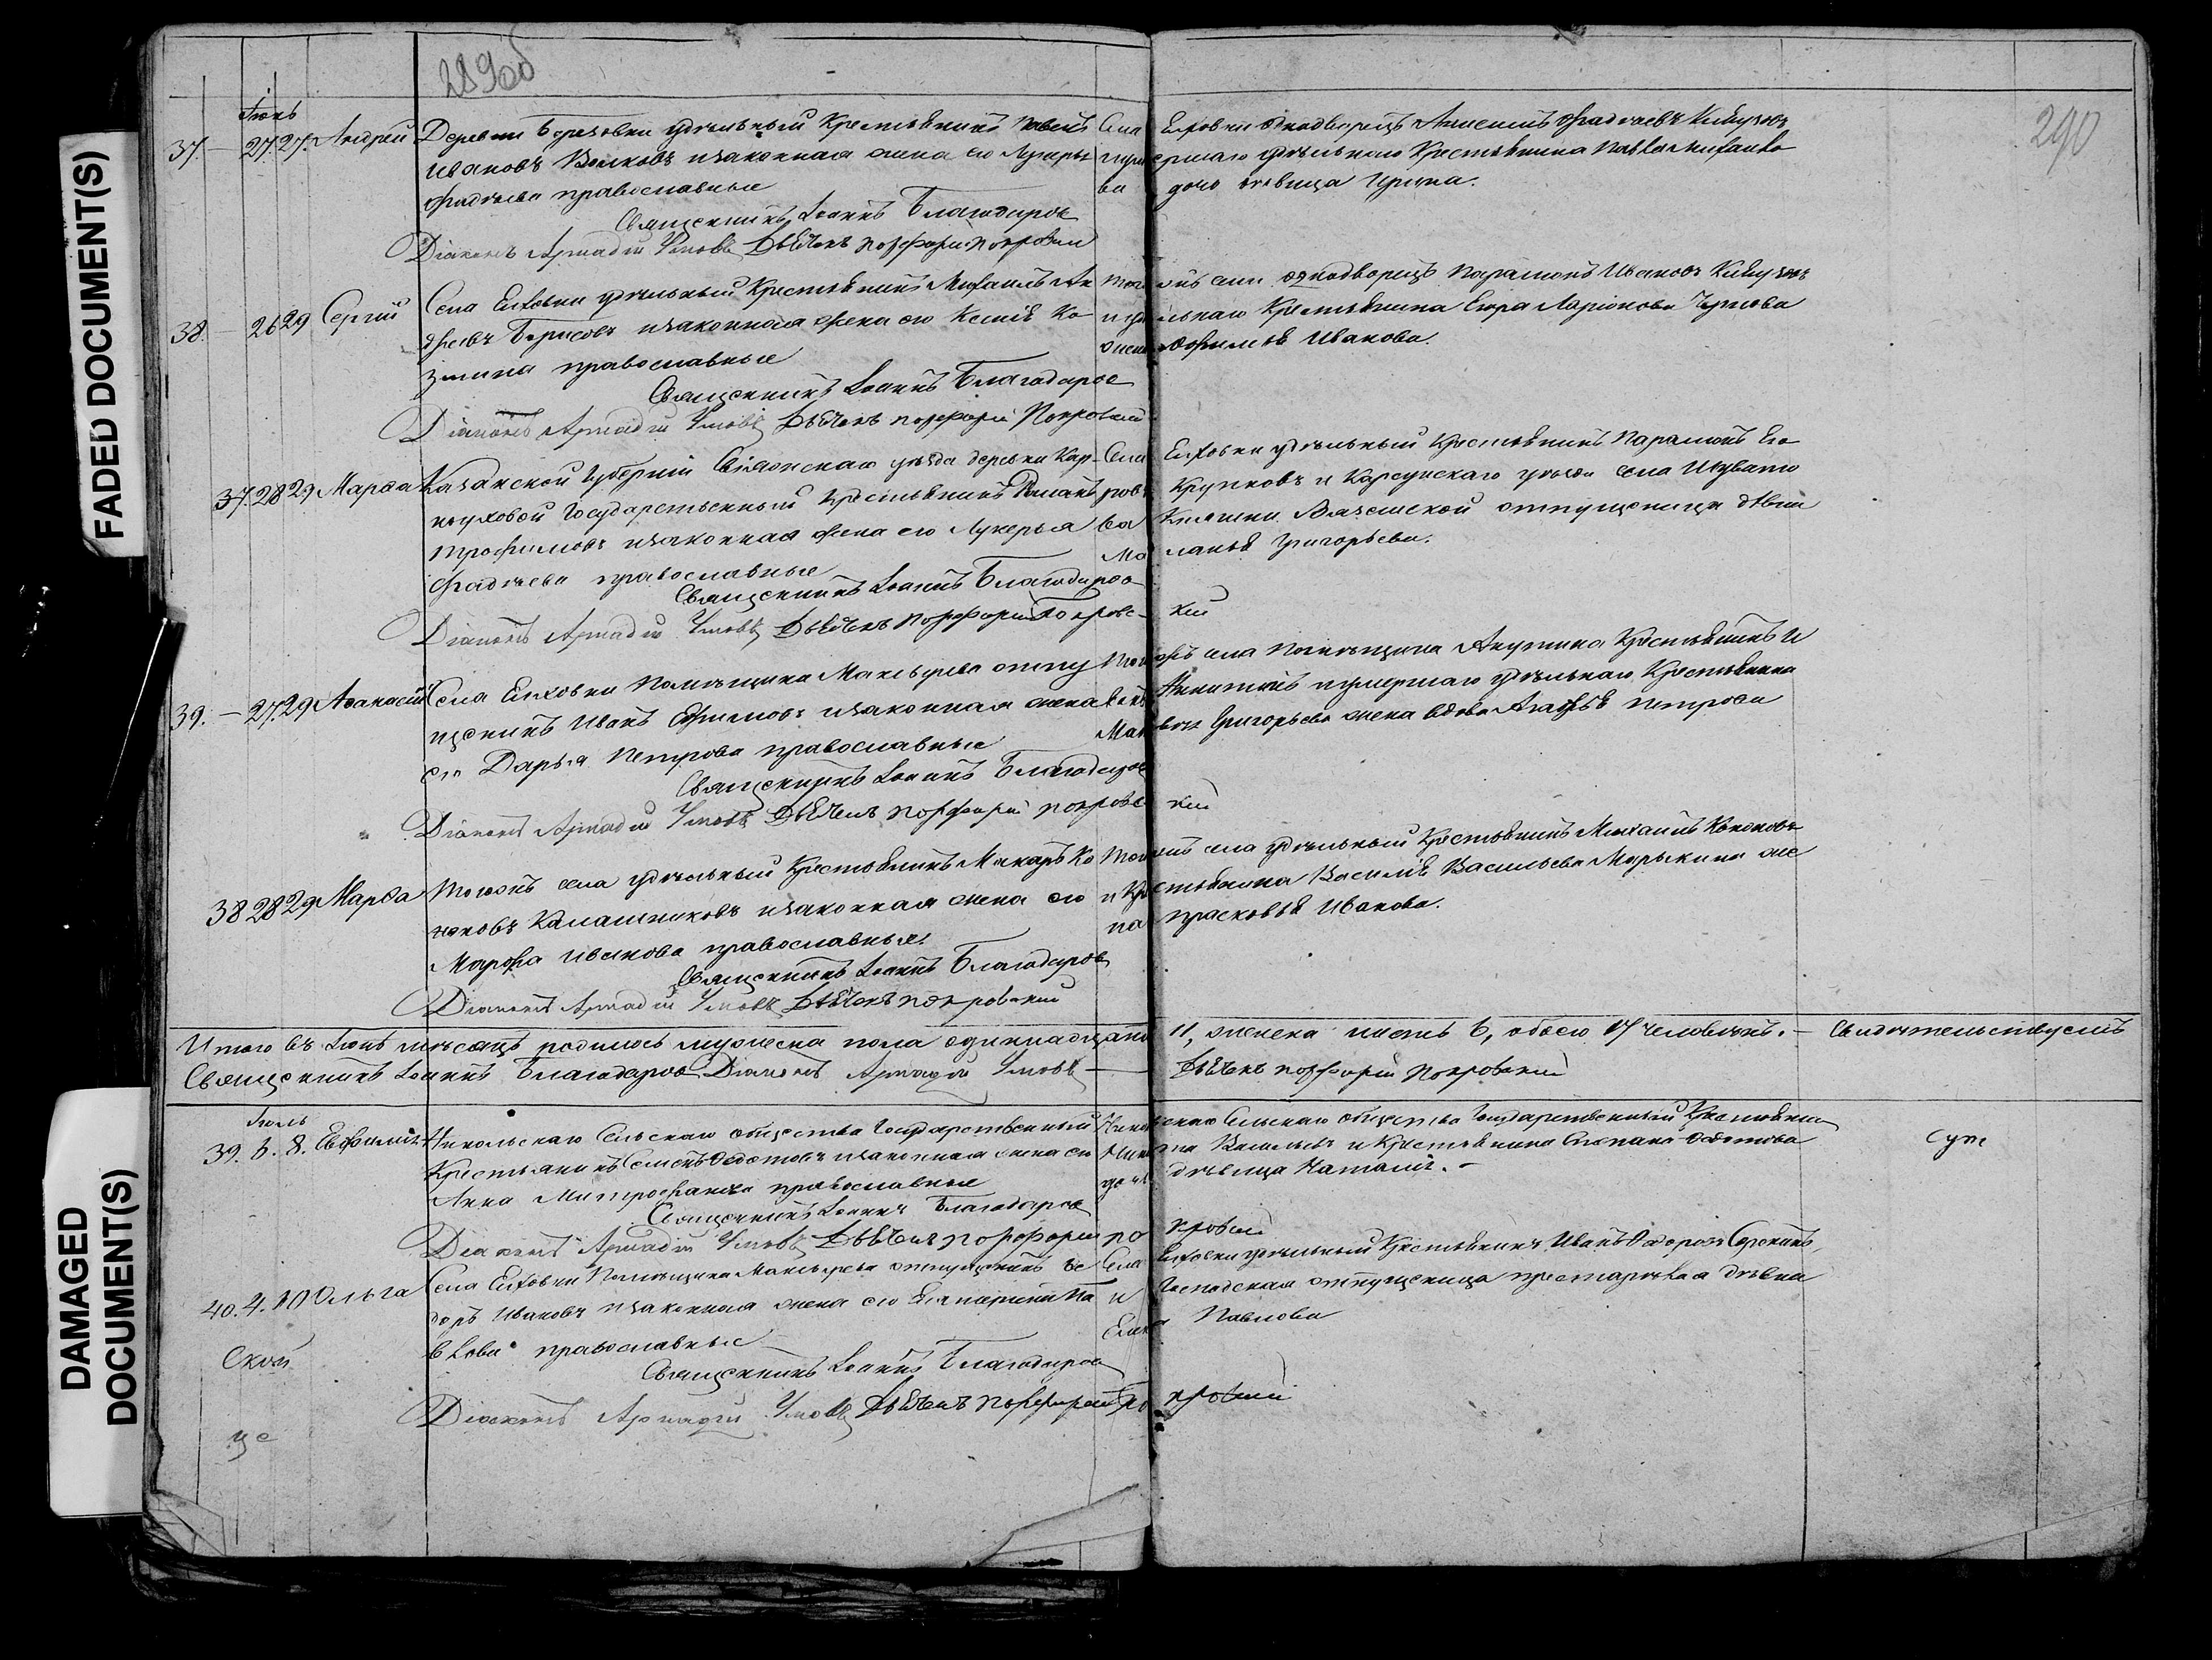 FADED DOCUMENT(S)
DAMAGED
DOCUMENT(S)
289об
290
Іюнь
37. — 27. 27. Андрей
Деревни Березовки удѣльный крестьянинъ Павелъ
Ивановъ Волковъ и законная жена его Лукерья
Фадѣева православные
Священникъ Іоаннъ Благодаров
Діаконъ Аркадій Умовъ Дьячекъ Порфирій Покровскій
Села Елховки однодворецъ Фадѣевъ
умершаго удѣльнаго крестьянина Павла
дочь дѣвица Ирина.
38. — 26 29 Сергій
Села Елховки удѣльный крестьянинъ Михаилъ Ан
дреевъ Борисовъ и законная жена его Ксенія Ко
зьмина православные
Священникъ Іоаннъ Благодаров
Діаконъ Аркадій Умовъ Дьячекъ Порфирій Покровскій
села однодворецъ Парамонъ Ивановъ
и удѣльнаго крестьянина Егора Ларіонова
Иванова.
37. 28 29 Марѳа
Казанской губерніи Свіяжскаго уѣзда деревни Кар-
Государственный крестьянинъ Романъ
Трофимовъ и законная жена его Лукерья
Фадѣева православные
Священникъ Іоаннъ Благодаров
Діаконъ Аркадій Умовъ Дьячекъ Порфирій Покровс-
кій
Села Елховки удѣльный крестьянинъ Парамонъ Его
ровъ Крупновъ и Карсунскаго уѣзда села
отпущеница дѣвица
Маланья Григорьева.
39. — 27. 29 Аѳанасій
Села Елховки Помѣщика Мансырева отпу
щенникъ Иванъ Ефимовъ и законная жена
его Дарья Петрова православные
Священникъ Іоаннъ Благодаров
Діаконъ Аркадій Умовъ Дьячекъ Порфирій Покровс
кій
села помѣщика Акупина крестьянинъ И
Никитинъ и умершаго удѣльнаго крестьянина
Григорьева жена вдова Агафья Петрова
38 28 29 Марѳа
Того жъ села удѣльный крестьянинъ Макаръ Ко
ноновъ Калашниковъ и законная жена его
Марѳа Иванова православные.
Священникъ Іоаннъ Благодаров
Діаконъ Аркадій Умовъ Дьячекъ Покровскій
села удѣльный крестьянинъ Михаилъ Кононовъ
и крестьянина Василія Васильева Марыкина же
на Прасковья Иванова.
Итого въ Іюнѣ мѣсяцѣ родилось мужеска пола одинадцать 11, женска шесть 6, обоего 17 человѣкъ. — Свидѣтельствуемъ
Священникъ Іоаннъ Благодаров Діаконъ Аркадій Умовъ — Дьячекъ Порфирій Покровскій
Іюль
39. 6. 8. Евфимія
Никольскаго Сельскаго общества Государственный
Крестьянинъ Семенъ Ѳедотовъ и законная жена его
Анна Митрофанова православные
Священникъ Іоаннъ Благодаров
Діаконъ Аркадій Умовъ Дьячекъ Порфирій По
кровскій
Сельскаго общества Государственный Крестьянин
Васильевъ и Крестьянина Степана Ѳедотова
дочь дѣвица Наталія. —
40. 4. 10 Ольга
Села Елховки Помѣщика Мансырева отпущенникъ Ѳе
доръ Ивановъ и законная жена его Екатерина Па
влова православные
Священникъ Іоаннъ Благодаров
Діаконъ Аркадій Умовъ Дьячекъ Порфирій По
кровскій
Села Елховки удѣльный крестьянинъ Иванъ Ѳедоровъ
и Господская отпущеница престарѣлая дѣвка
Павлова